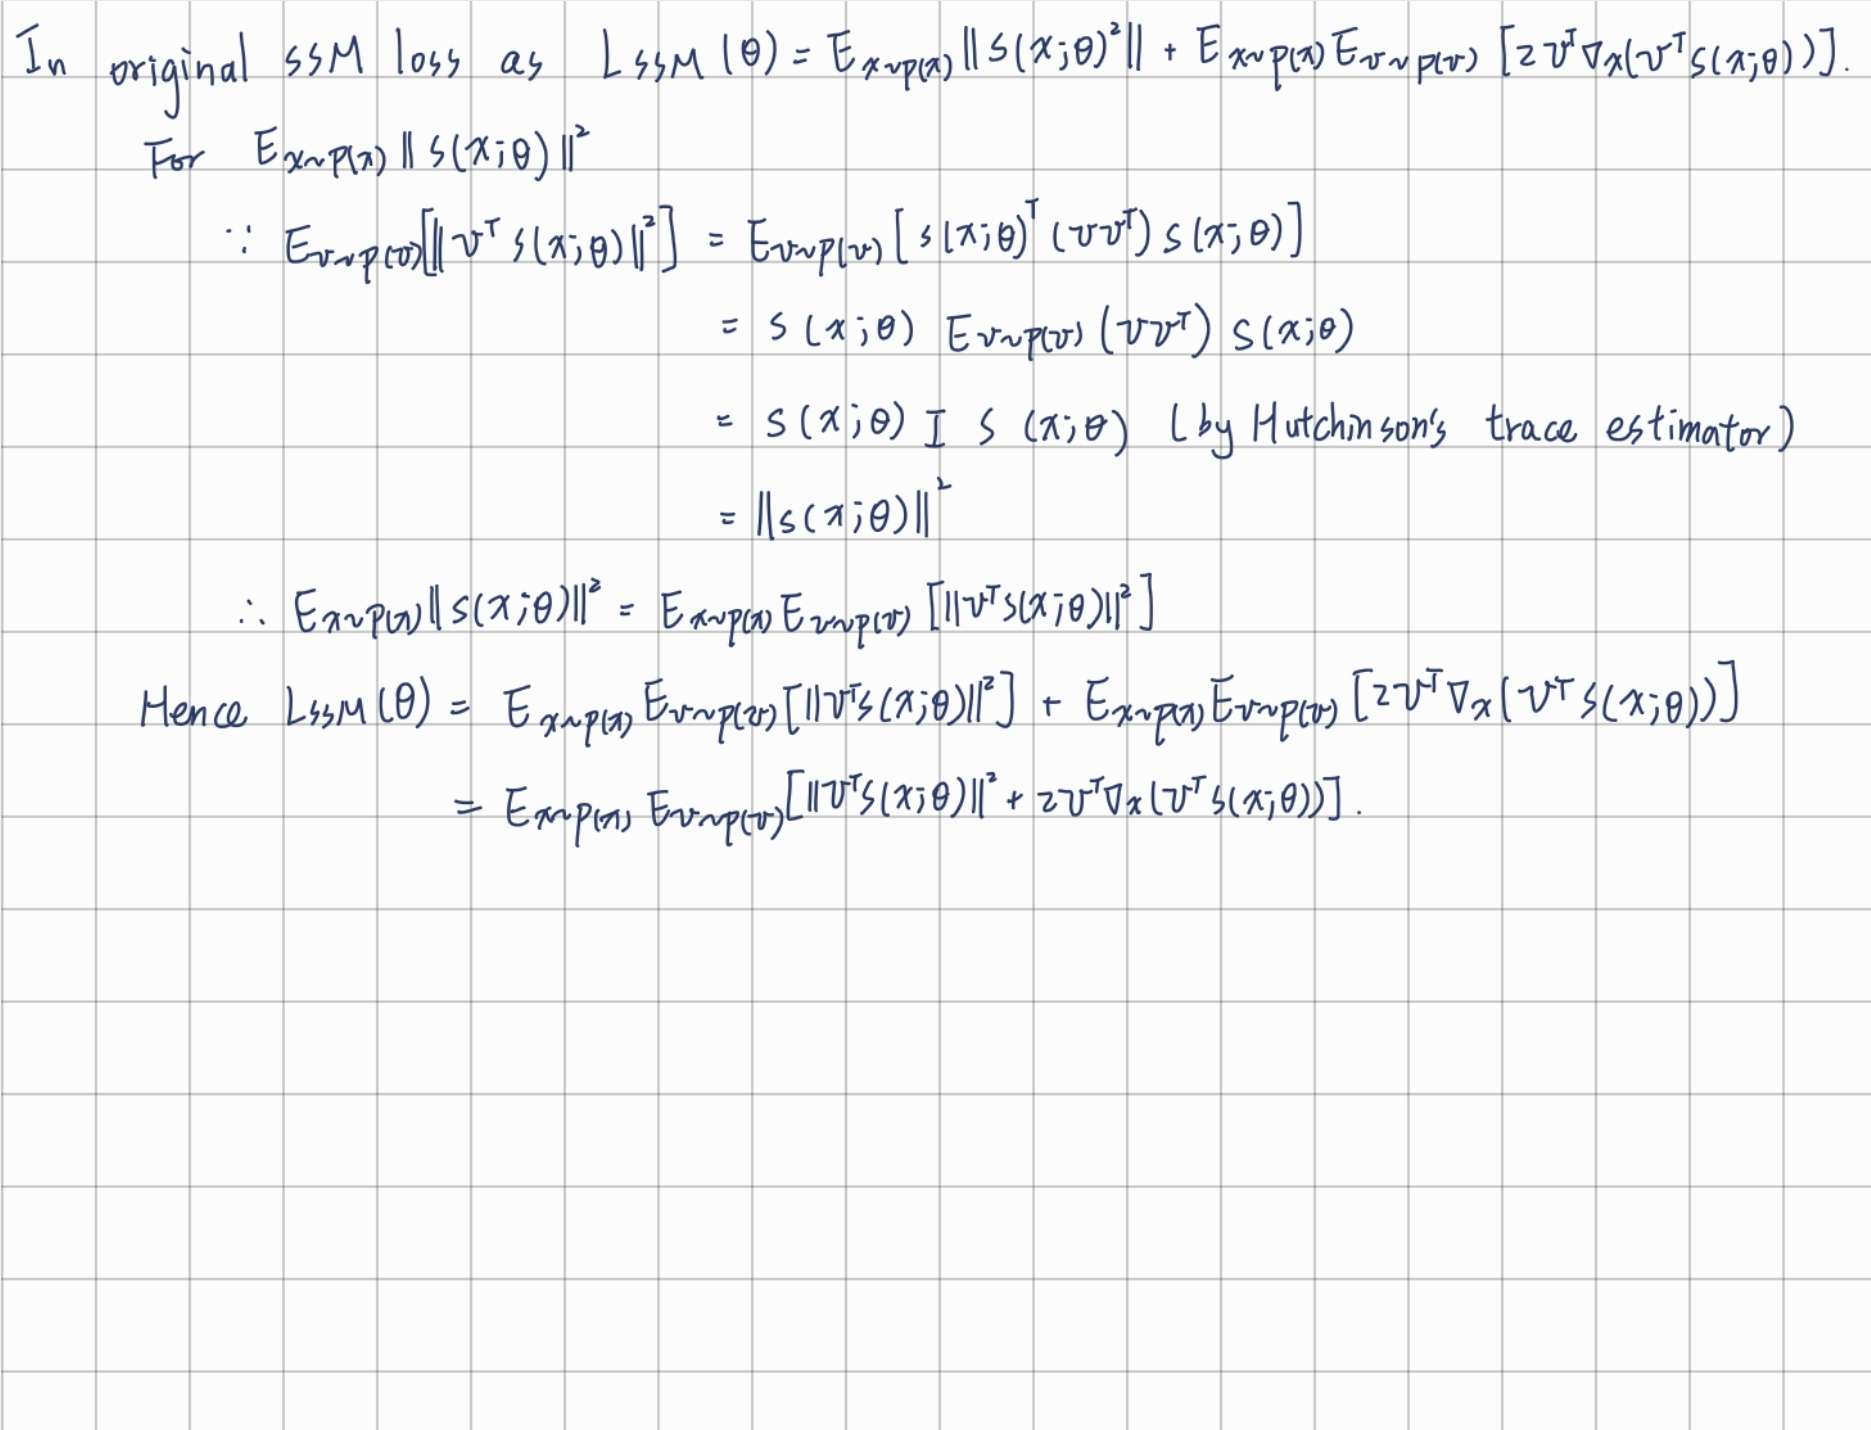 In original SSM loss as L_SSM(θ) = E_{x∼p(x)} ‖S(x;θ)²‖ + E_{x∼p(x)} E_{v∼p(v)} [2v^T ∇_x(v^T S(x;θ))].
For E_{x∼p(x)} ‖S(x;θ)‖²
∵ E_{v∼p(v)}[‖v^T S(x;θ)‖²] = E_{v∼p(v)} [S(x;θ)^T (vv^T) S(x;θ)]
= S(x;θ) E_{v∼p(v)} (vv^T) S(x;θ)
= S(x;θ) I S(x;θ) (by Hutchinson's trace estimator)
= ‖S(x;θ)‖²
∴ E_{x∼p(x)} ‖S(x;θ)‖² = E_{x∼p(x)} E_{v∼p(v)} [‖v^T S(x;θ)‖²]
Hence L_SSM(θ) = E_{x∼p(x)} E_{v∼p(v)} [‖v^T S(x;θ)‖²] + E_{x∼p(x)} E_{v∼p(v)} [2v^T ∇_x(v^T S(x;θ))]
= E_{x∼p(x)} E_{v∼p(v)} [‖v^T S(x;θ)‖² + 2v^T ∇_x(v^T S(x;θ))].